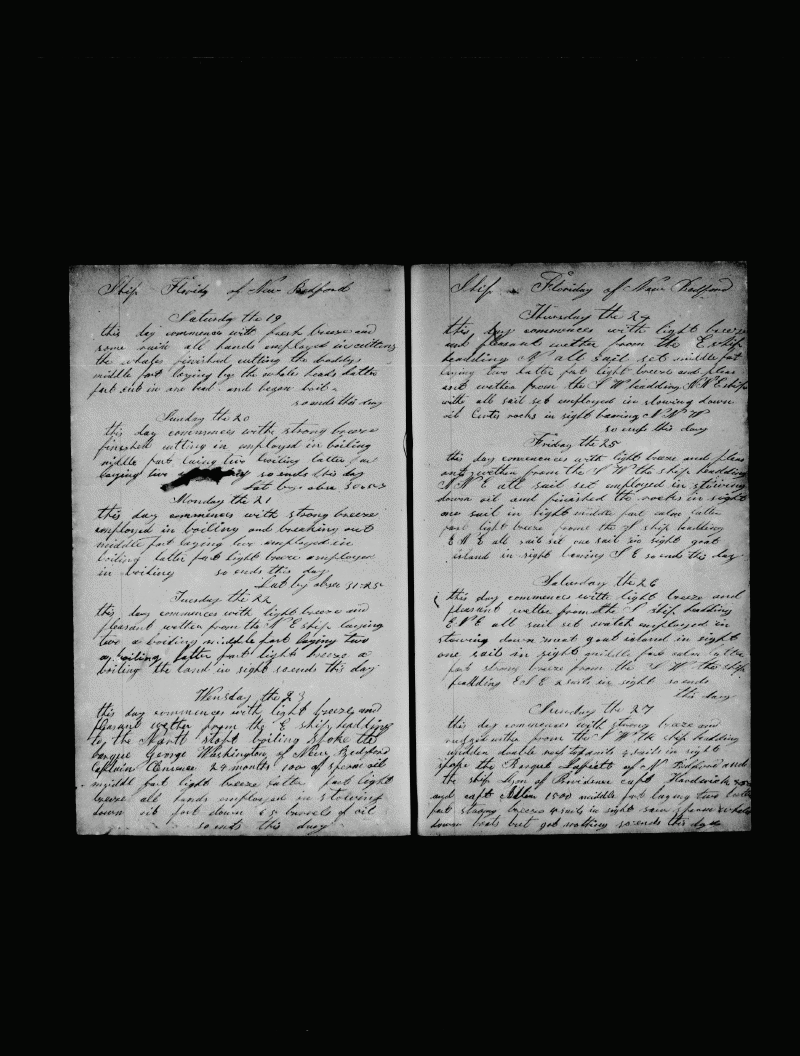 Ship Florida of New Bedford
Saturday the 19
this day commences with fresh breeze and
some rain all hands employed in cutting
the whales finished cutting the boddys
middle part laying by the whales heads latter
part cut in one head and began boil
so ends this day
Sunday the 20
this day commences with strong breeze
finished cutting in employed in boiling
middle part laing two boiling latter
laying two so ends this day
Lat by obser
Monday the 21
this day commences with strong breeze
employed in boiling and breaking out
middle part laying two employed in
boiling latter part light breeze employed
in boiling so ends this day
Lat by obser 31-25
Tuesday the 22
this day commences with light breeze and
pleasant wether from the N E ship laying
two a boiling middle part laying two
a boiling latter part light breeze a
boiling the land in sight so ends this day
Wensday the 23
this day commences with light breeze and
pleasant wether from the E ship hedding
to the North stopt boiling spoke the
barque George Washington of New Bedford
Captain 24 months 100 of sperm oil
middle part light breeze latter part light
breeze all hands employed in stowing
down oil fort down 65 barrels of oil
so ends this day
Ship Floriday of New Bedford
Thursday the 24
this day commences with light breeze
and pleasant wether from the E ship
headding N all sail set middle part
laying two latter part light breeze and pleas
ant wether from the S W hedding N N E ship
with all sail set employed in stowing down
oil rocks in sight bearing
so ends this day
Friday the 25
this day comences with light breeze and pleas
ant wether from the S W the ship headding
N E all sail set employed in stowing
down oil and finished the rocks in sight
one sail in sight middle part calm latter
part light breeze from the S ship hedding
all sail set one sail in sight goat
island in sight bearing S E so ends this day
Saturday the 26
this day commences with light breeze and
pleasant wether from the S ship hedding
all sail set watch employed in
stowing down meat goat island in sight
one sail in sight middle part calm latter
part strong breeze from the S W the ship
hedding E S E 2 sails in sight so ends
this day
Sunday the 27
this day commences with strong breeze and
from the S W the ship hedding
under double reef topsails sails in sight
spoke the Barque of N Bedford and
the ship of Providence capt
and capt Allen 1500 middle part laying two latter
part strong breeze 4 sails in sight saw sperm whales
down boats but got nothing so ends this day